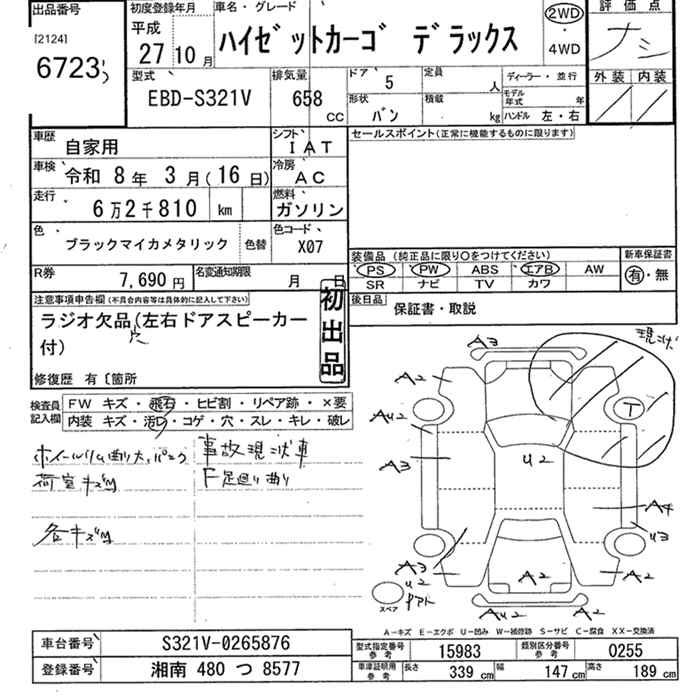 出品番号
[2124]
6723
初度登録年月
平成
27 10月
車名・グレード
ハイゼットカーゴ デラックス
2WD
・
4WD
評価点
ナシ
外装 内装
型式
EBD-S321V
排気量
658
CC
ドア 5
定員 人
ディーラー・並行
モデル年式 年
形状 バン
積載 kg
ハンドル 左・右
車歴 自家用
シフト IAT
車検 令和 8年 3月(16日)
冷房 AC
走行 6万2千810 km
燃料 ガソリン
色 ブラックマイカメタリック 色替
色コード X07
R券 7,690円
名変通知期限 月 日
セールスポイント(正常に機能するものに限ります)
装備品 (純正品に限り○をつけてください)
PS PW ABS エアB AW
SR ナビ TV カワ
新車保証書
有・無
後日品 保証書・取説
注意事項申告欄(不具合内容等は具体的に記入して下さい)
ラジオ欠品(左右ドアスピーカー
穴
付)
初出品
修復歴 有〔箇所
検査員記入欄
FW キズ・飛石・ヒビ割・リペア跡・×要
内装 キズ・汚れ・コゲ・穴・スレ・キレ・破レ
ホイールリム曲り大、パンク
荷室キズ凹
各キズ凹
事故現状車
F足廻り曲り
現状
A3
A2
AU2
A3
U2
T
A4
U3
A3
A2
A2
A2
AU2
A2
U2
スペア
A-キズ E-エクボ U-凹み W-補修跡 S-サビ C-腐食 XX-交換済
車台番号 S321V-0265876
登録番号 湘南 480 つ 8577
型式指定番号 参考 15983
類別区分番号 参考 0255
車庫証明用 参考 長さ 339 cm 幅 147 cm 高さ 189 cm